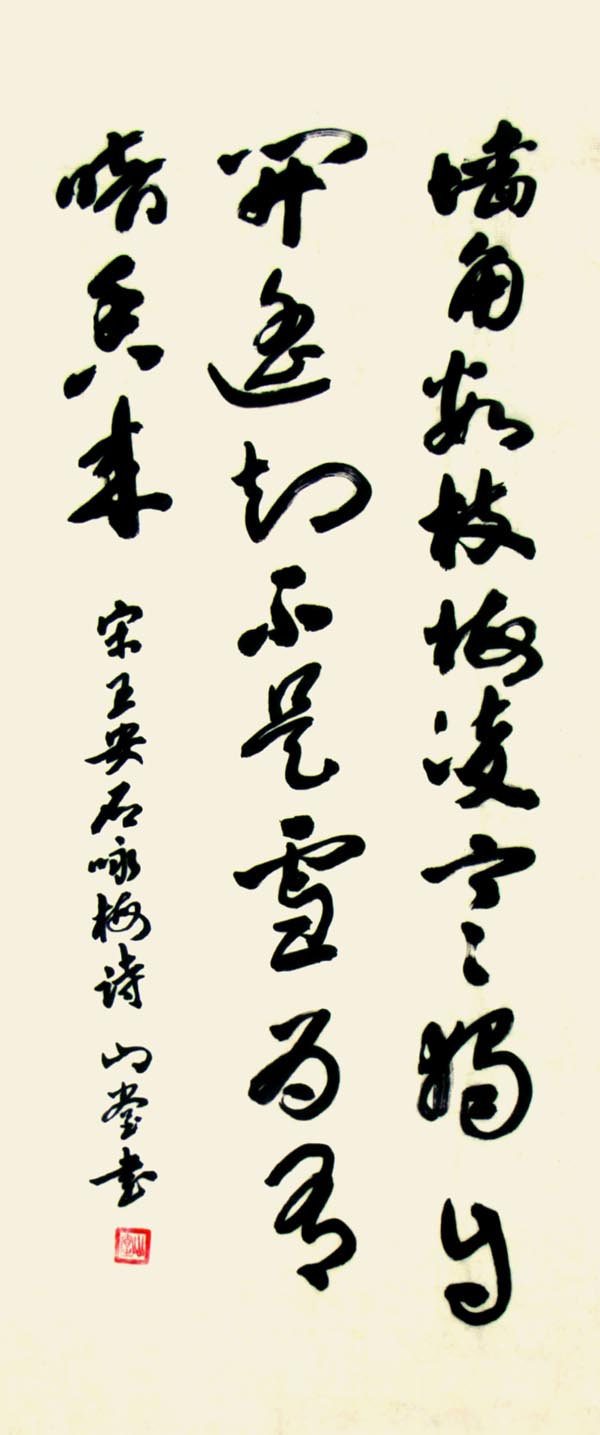 墙角数枝梅凌寒独自
开遥知不是雪为有
暗香来
宋王安石咏梅诗 山堂书
山堂